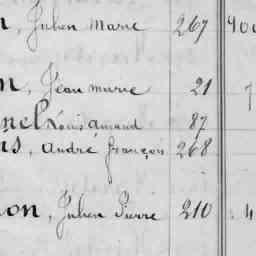 n, Julien Marie 267 400
n, Jean marie 21
nel Louis Amand 87
ns, André françois 268
on, Julien Pierre 210 4